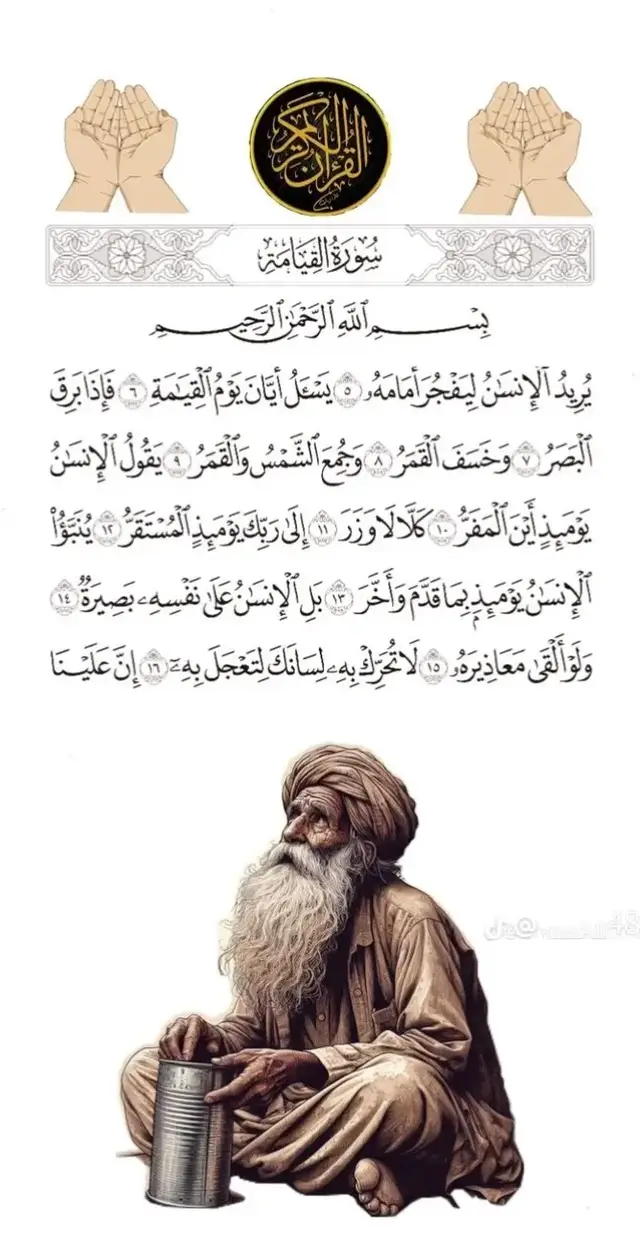 القرآن الكريم
سُورَةُ القِيَامَةِ
بِسْمِ ٱللَّهِ ٱلرَّحْمَٰنِ ٱلرَّحِيمِ
يُرِيدُ ٱلْإِنسَٰنُ لِيَفْجُرَ أَمَامَهُۥ ٥ يَسْـَٔلُ أَيَّانَ يَوْمُ ٱلْقِيَٰمَةِ ٦ فَإِذَا بَرِقَ
ٱلْبَصَرُ ٧ وَخَسَفَ ٱلْقَمَرُ ٨ وَجُمِعَ ٱلشَّمْسُ وَٱلْقَمَرُ ٩ يَقُولُ ٱلْإِنسَٰنُ
يَوْمَئِذٍ أَيْنَ ٱلْمَفَرُّ ١٠ كَلَّا لَا وَزَرَ ١١ إِلَىٰ رَبِّكَ يَوْمَئِذٍ ٱلْمُسْتَقَرُّ ١٢ يُنَبَّؤُا۟
ٱلْإِنسَٰنُ يَوْمَئِذٍۭ بِمَا قَدَّمَ وَأَخَّرَ ١٣ بَلِ ٱلْإِنسَٰنُ عَلَىٰ نَفْسِهِۦ بَصِيرَةٌ ١٤
وَلَوْ أَلْقَىٰ مَعَاذِيرَهُۥ ١٥ لَا تُحَرِّكْ بِهِۦ لِسَانَكَ لِتَعْجَلَ بِهِۦٓ ١٦ إِنَّ عَلَيْنَا